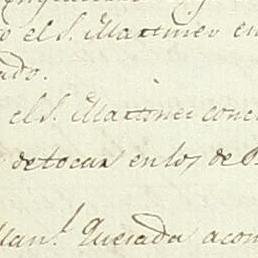 el S. Martinez en
el S. Martinez conc
de tocar en los de
Man.l Quesada acom